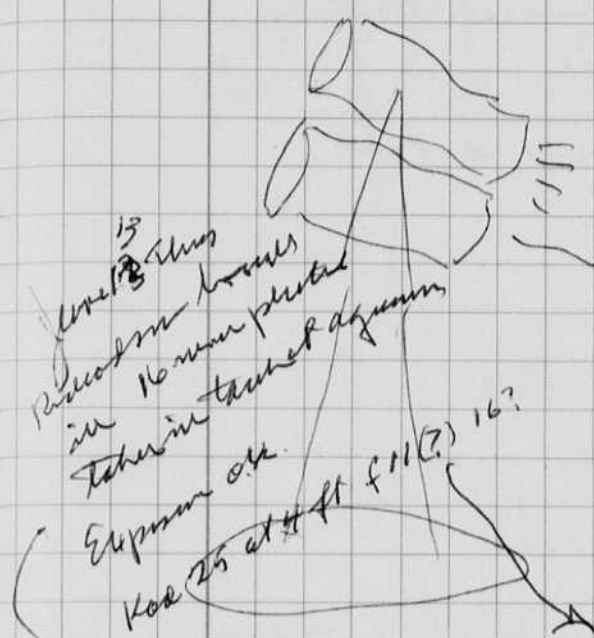 June 13 Thurs
Richardson brings
in 16 mm photos
taken in tank at aquarium
Exposure o.k.
Kod 25 at 4 ft f 11(?) 16?